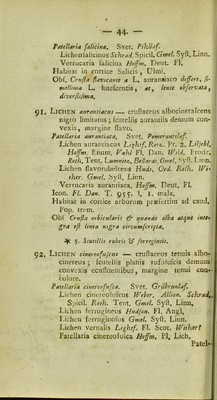 — 44. —
Patellaria salicina. Svet. Pihllaf.
Lichen salicinus Schrad. Spicil. Gmel. Syst. Linn.
Verrucaria salicina Hoffm. Deut. Fl.
Habitat in cortice Salicis, Ulmi.
Obs. Crusta flavicante a L. aurantiaco differt, si-
millima L. lutescentis, at, lente observata,
diversissima.
91. LICHEN aurantiacus — crustaceus albocinerascens
nigro limitatus; scutellis aurantiis demum con-
vexis, margine flavo.
Patellaria aurantiaca, Svet. Pomeranslaf.
Lichen aurantiacus Lightf. Retz. Pr. 2. Liljebl.
Hoffm. Enum. Wahl Fl. Dan. Wild. Frodr.
Roth. Tent. Lumnitz. Bellardi. Gmel. Syst. Linn.
Lichen flavorubescens Huds. Ged. Relh. Wi-
ther. Gmel. Syst. Linn.
Verrucaria aurantiaca, Hoffm. Deut. Fl.
Icon. Fl. Dan. T. 955. f. 1. mala.
Habitat in cortice arborum præsertim ad caud.
Pop. trem.
Obs. Crusta orbicularis & quando alba atque inte-
gra est linea nigra circumscripta.
* 5. Scutellis rubris & ferrugineis.
92. LICHEN cinereofuscus — crustaceus tenuis albo-
cinereus; scutellis planis rufofuscis demum
convexis confluentibus, margine tenui con-
colore.
Patellaria cinereofusca. Svet. Gråbrunlaf.
Lichen cinereofuscus Weber, Allion. Schrad.
Spicil. Roth. Tent. Gmel. Syst. Linn.
Lichen ferrugineus Hudson. Fl. Angl.
Lichen ferruginosus Gmel. Syst. Linn.
Lichen vernalis Lightf. Fl. Scot. Withert
Patellaria cinereofusca Hoffm. Pl. Lich.
Patel-